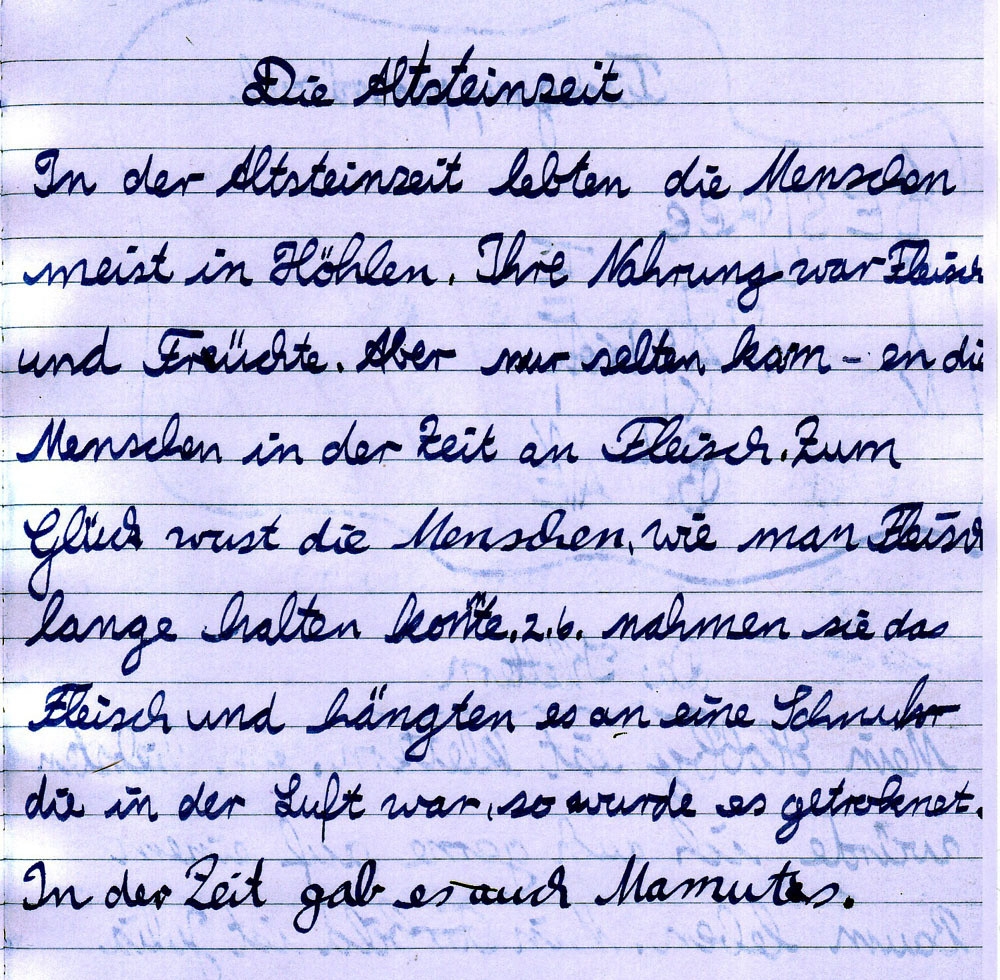 Die Altsteinzeit
In der Altsteinzeit lebten die Menschen
meist in Höhlen. Ihre Nahrung war Fleisch
und Früchte. Aber nur selten kam - en die
Menschen in der Zeit an Fleisch. Zum
Glück wust die Menschen, wie man Fleisch
lange halten konte, z.b. nahmen sie das
Fleisch und hängten es an eine Schnuhr
die in der Luft war, so wurde es getroknet.
In der Zeit gab es auch Mamuts.